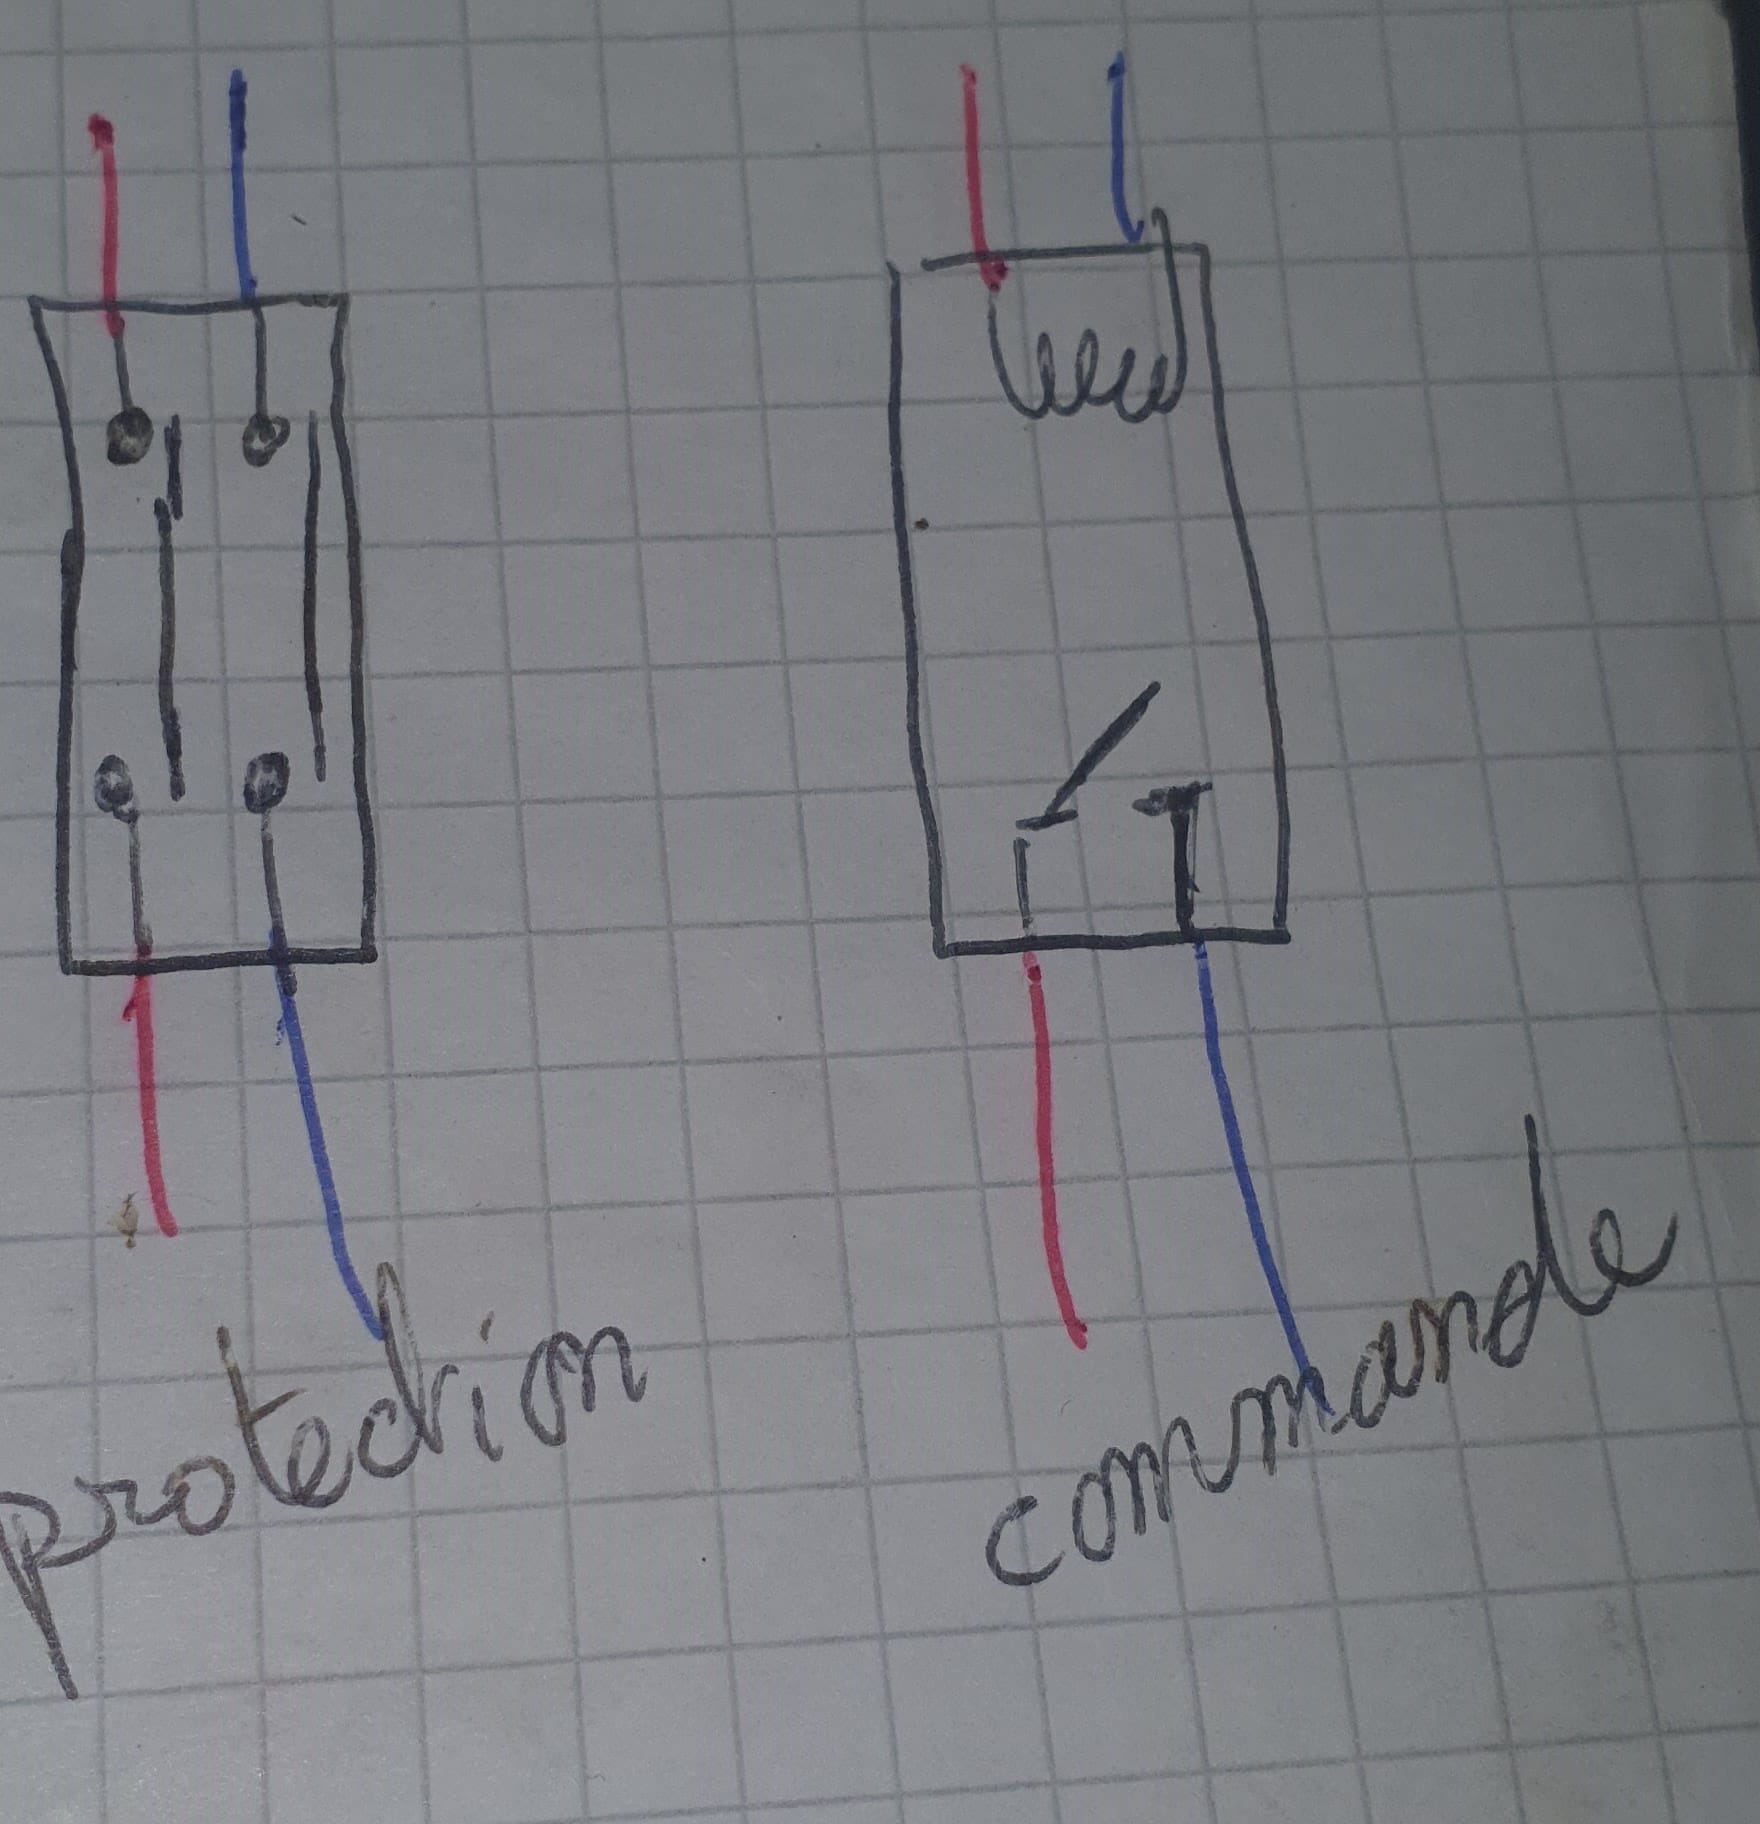 protection
commande